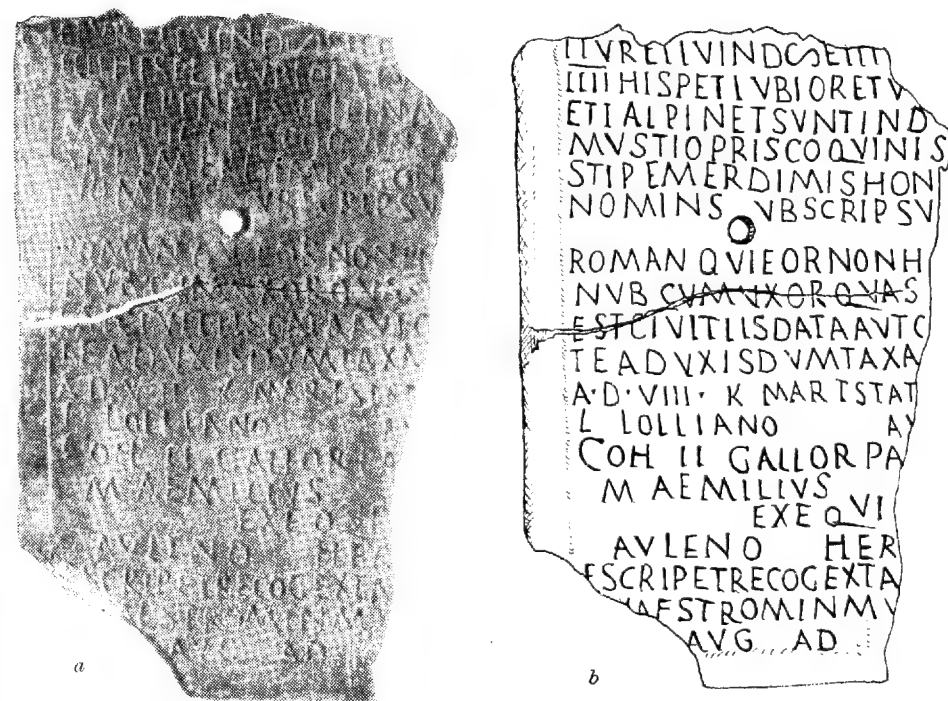 IIVRETIVINDCSETIII
IIII HISPETIVBIORETV
ETI ALPINETSVNTIND
MVSTIOPRISCOQVINIS
STIPEMERDIMISHON
NOMINS VBSCRIPSV
ROMAN QVIEORNONH
NVB CVMVXORQVAS
ESTCIVITLISDATAAVTC
TEADVXISDVMTAXA
A·D·VIII· K MARTSTAT
L LOLLIANO AV
COH II GALLOR PA
M AEMILIVS
EXEQVI
AVLENO HER
ESCRIPETRECOGEXTA
AESTROMINMV
AVG AD
a
b